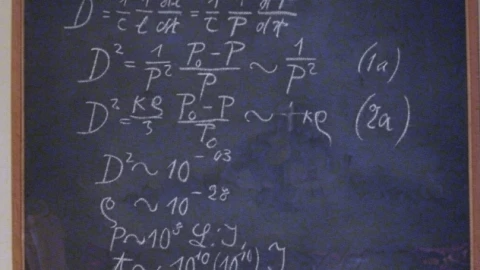 D = 1/c 1/l dl/dt = 1/c 1/P dP/dt
D² = 1/P² P₀-P/P ~ 1/P² (1a)
D² = κϱ/3 P₀-P/P₀ ~ κϱ (2a)
D² ~ 10⁻⁵³
ϱ ~ 10⁻²⁸
P ~ 10⁸ L.J.
t ~ 10¹⁰(10¹¹) J